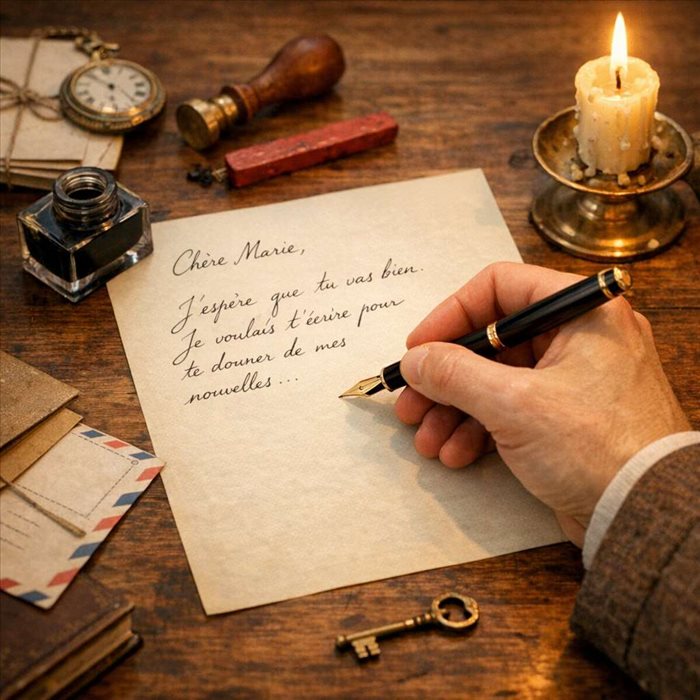 Chère Marie,
J'espère que tu vas bien.
Je voulais t'écrire pour
te donner de mes
nouvelles ...